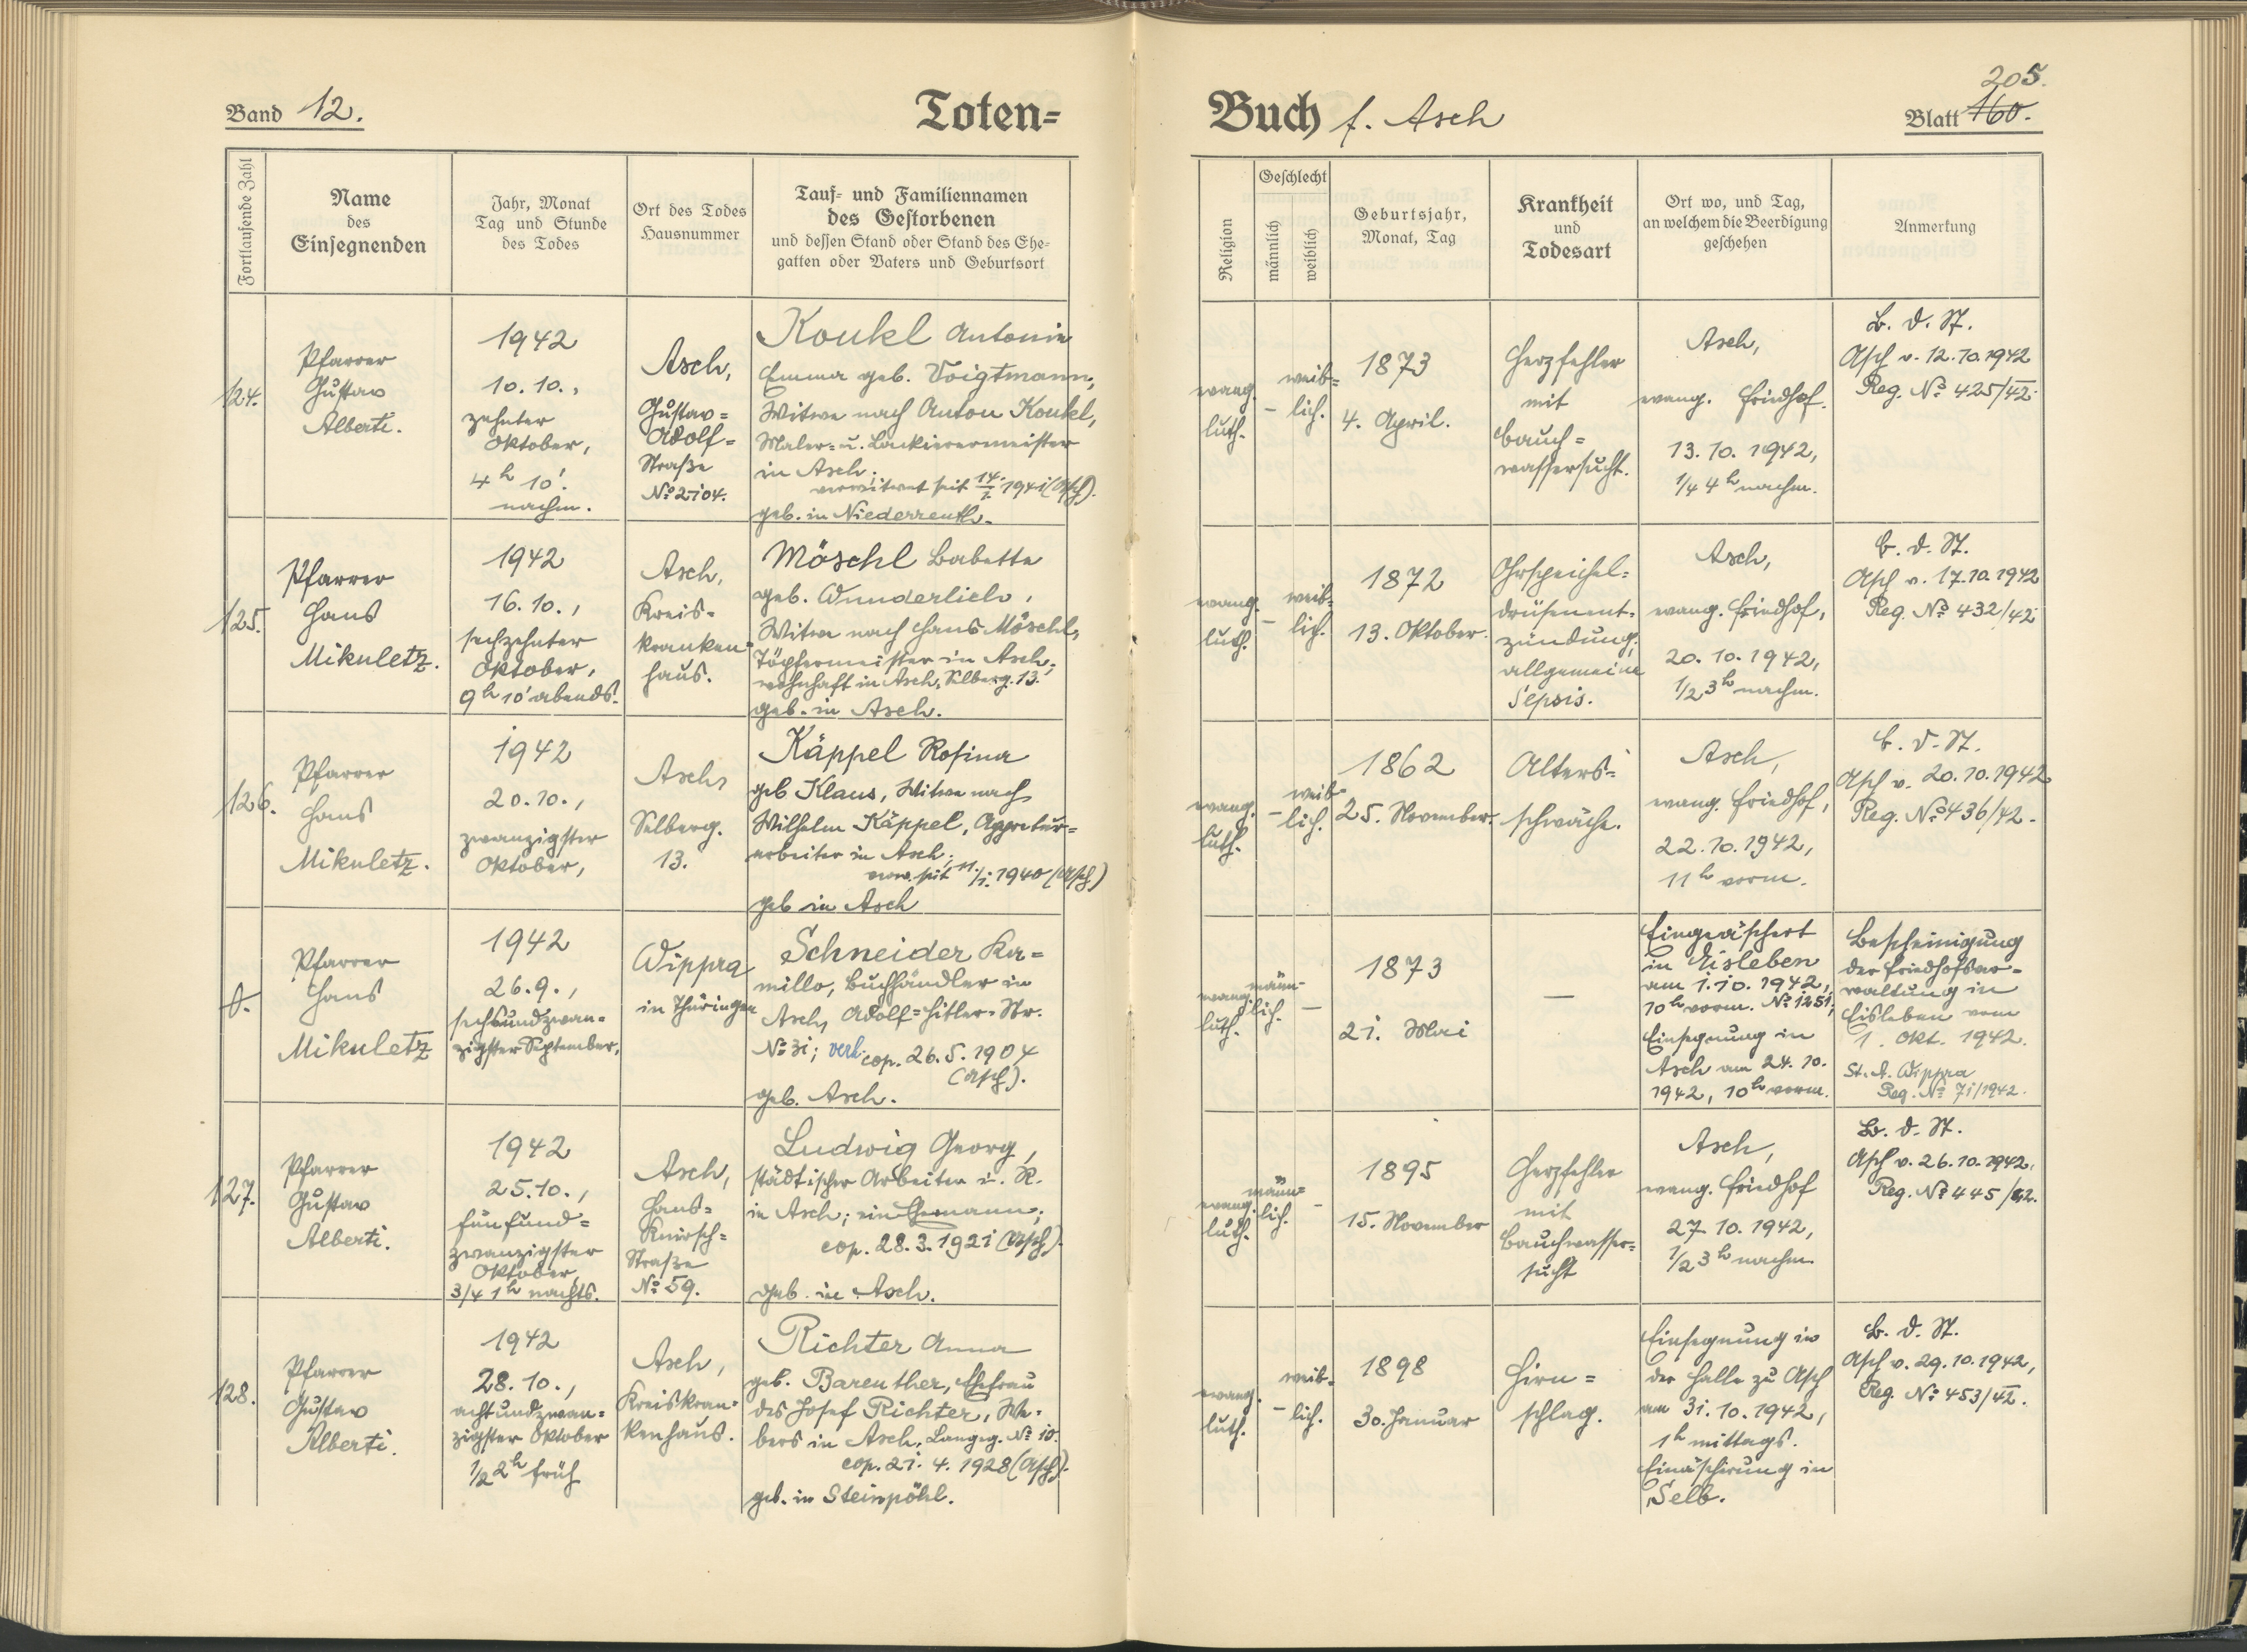 Band 12.
Toten=
Fortlaufende Zahl
Name
des
Einsegnenden
Jahr, Monat
Tag und Stunde
des Todes
Ort des Todes
Hausnummer
Tauf- und Familiennamen
des Gestorbenen
und dessen Stand oder Stand des Ehe-
gatten oder Vaters und Geburtsort
124.
Pfarrer
Gustav
Alberti.
1942
10.10.,
zehnter
Oktober,
4h 10'.
nachm.
Asch,
Gustav=
Adolf=
Straße
No 2104.
Koukl Antonie
Emma geb. Voigtmann,
Witwe nach Anton Koukl,
Maler- u. Lackierermeister
in Asch;
verwitwet seit 14./I. 1941 (Asch).
geb. in Niederreuth.
125.
Pfarrer
Hans
Mikuletz.
1942
16.10.,
sechzehnter
Oktober,
9h 10' abends.
Asch,
Kreis-
kranken-
haus.
Möschl Babette
geb. Wunderlich,
Witwe nach Hans Möschl,
Töpfermeister in Asch,
wohnhaft in Asch, Selberg. 13.
geb. in Asch.
126.
Pfarrer
Hans
Mikuletz.
1942
20.10.,
zwanzigster
Oktober,
Asch,
Selberg.
13.
Käppel Rosina
geb Klaus, Witwe nach
Wilhelm Käppel, Appretur=
arbeiter in Asch;
verw. seit 11./I. 1940 (Asch)
geb in Asch
Pfarrer
Hans
Mikuletz
1942
26.9.,
sechsundzwan-
zigster September,
Wippra
in Thüringen
Schneider Ka=
millo, Buchhändler in
Asch, Adolf=Hitler-Str.
No 31; verh. cop. 26.5.1904
(Asch).
geb. Asch.
127.
Pfarrer
Gustav
Alberti.
1942
25.10.,
fünfund=
zwanzigster
Oktober,
3/4 1h nachts.
Asch,
Hans=
Knirsch=
Straße
No 59.
Ludwig Georg,
städtischer Arbeiter i. R.
in Asch; ein Ehemann;
cop. 28.3.1921 (Asch).
geb. in Asch.
128.
Pfarrer
Gustav
Alberti.
1942
28.10.,
achtundzwan=
zigster Oktober
1/2 2h früh
Asch,
Kreiskran-
kenhaus.
Richter Anna
geb. Bareuther, Ehefrau
des Josef Richter, We-
bers in Asch, Langeg. No 10.
cop. 21.4.1928 (Asch).
geb. in Steinpöhl.
Buch f. Asch
205.
Blatt 160.
Religion
Geschlecht
männlich
weiblich
Geburtsjahr,
Monat, Tag
Krankheit
und
Todesart
Ort wo, und Tag,
an welchem die Beerdigung
geschehen
Anmerkung
evang.
luth.
–
weib=
lich.
1873
4. April.
Herzfehler
mit
Bauch=
wassersucht.
Asch,
evang. Friedhof.
13.10.1942,
1/4 4h nachm.
B. d. St.
Asch v. 12.10.1942
Reg. No 425/42.
evang.
luth.
–
weib-
lich.
1872
13. Oktober.
Ohrspeichel=
drüsenent-
zündung;
allgemeine
Sepsis.
Asch,
evang. Friedhof,
20.10.1942,
1/2 3h nachm.
B. d. St.
Asch v. 17.10.1942
Reg. No 432/42
evang.
luth.
–
weib-
lich.
1862
25. November.
Alters=
schwäche.
Asch,
evang. Friedhof,
22.10.1942,
11h vorm.
B. d. St.
Asch v. 20.10.1942
Reg. No 436/42.
evang.
luth.
männ-
lich.
–
1873
21. Mai
—
Eingeäschert
in Eisleben
am 1.10.1942,
10h vorm. No 1251;
Einsegnung in
Asch am 24.10.
1942, 10h vorm.
Bescheinigung
der Friedhofsver-
waltung in
Eisleben vom
1. Okt. 1942.
St. A. Wippra
Reg. No 71/1942.
evang.
luth.
männ=
lich.
–
1895
15. November
Herzfehler
mit
Bauchwasser=
sucht
Asch,
evang. Friedhof
27.10.1942,
1/2 3h nachm.
B. d. St.
Asch v. 26.10.1942,
Reg. No 445/42.
evang.
luth.
–
weib-
lich.
1898
30. Januar
Hirn=
schlag.
Einsegnung in
der Halle zu Asch
am 31.10.1942,
1h mittags.
Einäscherung in
Selb.
B. d. St.
Asch v. 29.10.1942,
Reg. No 453/42.